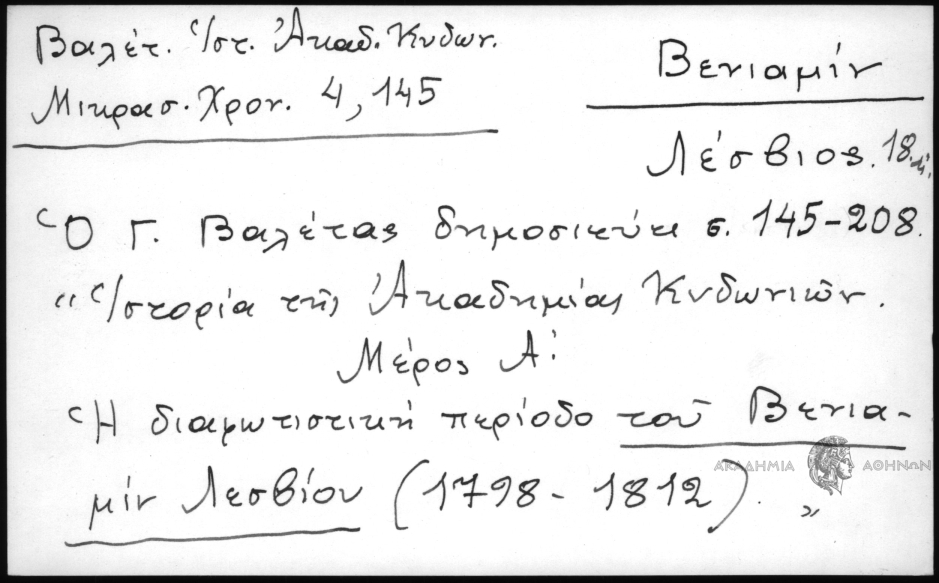 Βαλέτ. Ἱστ. Ἀκαδ. Κυδων.
Μικρασ. Χρον. 4, 145
Βενιαμίν
Λέσβιος. 18.
Ὁ Γ. Βαλέτας δημοσιεύει σ. 145-208.
"Ἱστορία τῆς Ἀκαδημίας Κυδωνιῶν.
Μέρος Α!
Ἡ διαφωτιστική περίοδο τοῦ Βενια-
μίν Λεσβίου (1798-1812). "
ΑΚΑΔΗΜΙΑ ΑΘΗΝΩΝ